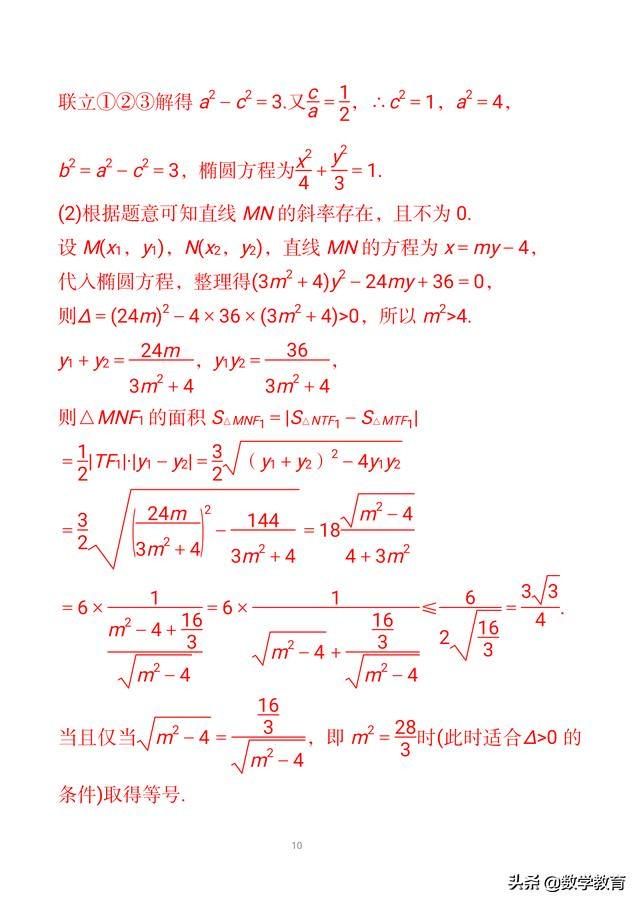 联立①②③解得 a² − c² = 3.又c/a = 1/2，∴c² = 1，a² = 4，
b² = a² − c² = 3，椭圆方程为x²/4 + y²/3 = 1.
(2)根据题意可知直线 MN 的斜率存在，且不为 0.
设 M(x₁，y₁)，N(x₂，y₂)，直线 MN 的方程为 x = my − 4，
代入椭圆方程，整理得(3m² + 4)y² − 24my + 36 = 0，
则Δ = (24m)² − 4 × 36 × (3m² + 4)>0，所以 m²>4.
y₁ + y₂ = 24m/(3m² + 4)，y₁y₂ = 36/(3m² + 4)，
则△MNF₁ 的面积 S△MNF₁ = |S△NTF₁ − S△MTF₁|
= 1/2|TF₁|·|y₁ − y₂| = 3/2√((y₁ + y₂)² − 4y₁y₂)
= 3/2√((24m/(3m² + 4))² − 144/(3m² + 4)) = 18√(m² − 4)/(4 + 3m²)
= 6 × 1/((m² − 4 + 16/3)/√(m² − 4)) = 6 × 1/(√(m² − 4) + (16/3)/√(m² − 4)) ≤ 6/(2√(16/3)) = 3√3/4.
当且仅当√(m² − 4) = (16/3)/√(m² − 4)，即 m² = 28/3时(此时适合Δ>0 的
条件)取得等号.
10
头条 @数学教育